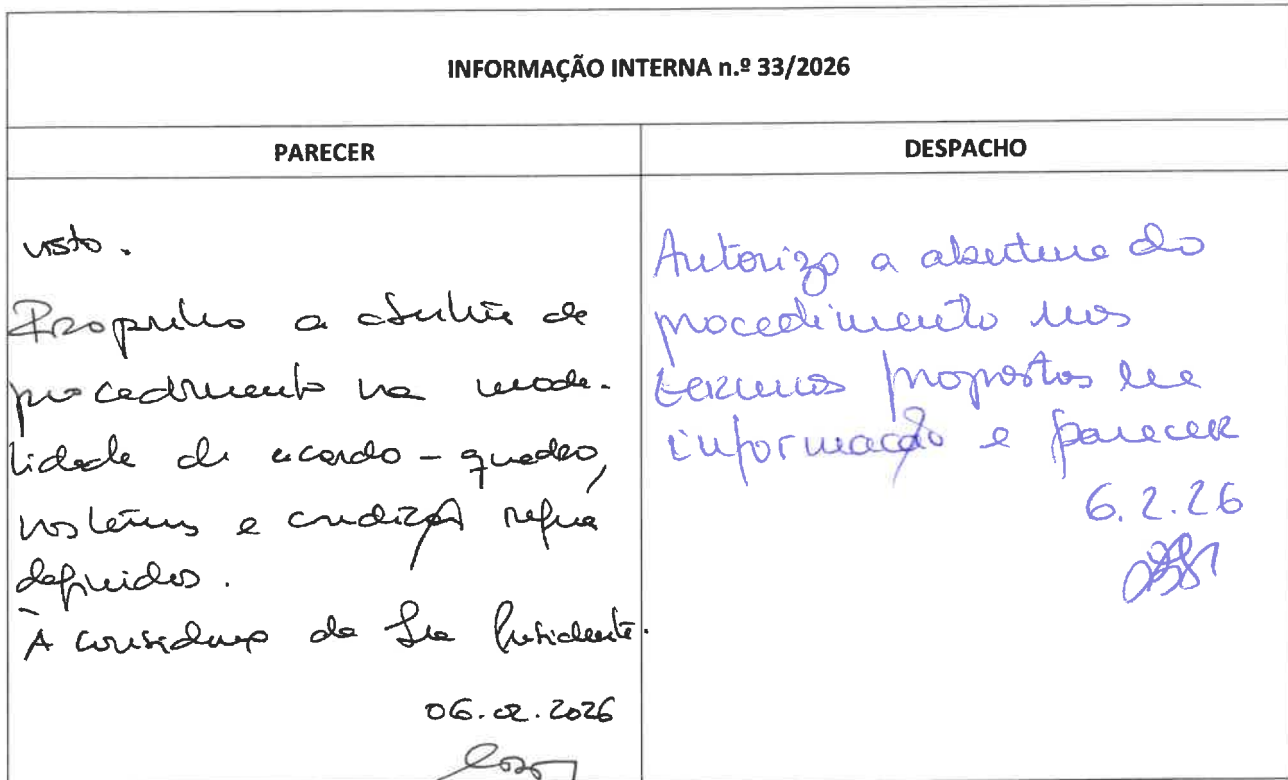 INFORMAÇÃO INTERNA n.º 33/2026
PARECER
visto.
Proponho a abertura de
procedimento na moda-
lidade de acordo-quadro,
nos termos e condições
definidos.
À consideração da Sra Presidente.
06.02.2026
DESPACHO
Autorizo a abertura do
procedimento nos
termos propostos na
informação e parecer
6.2.26